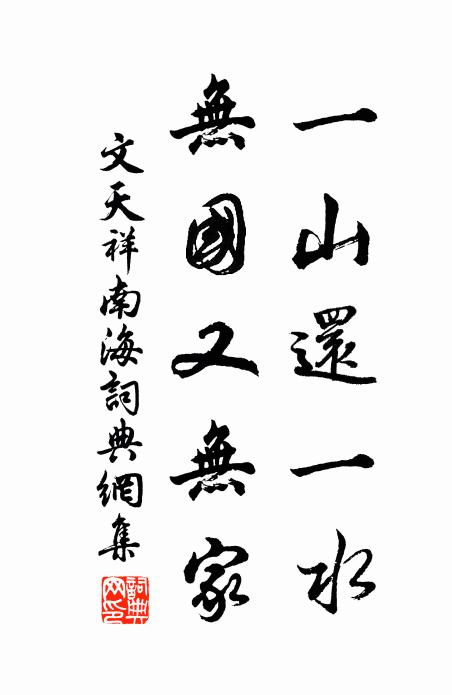 一山還一水
無國又無家
文天祥南海詞典網集
詞典網印